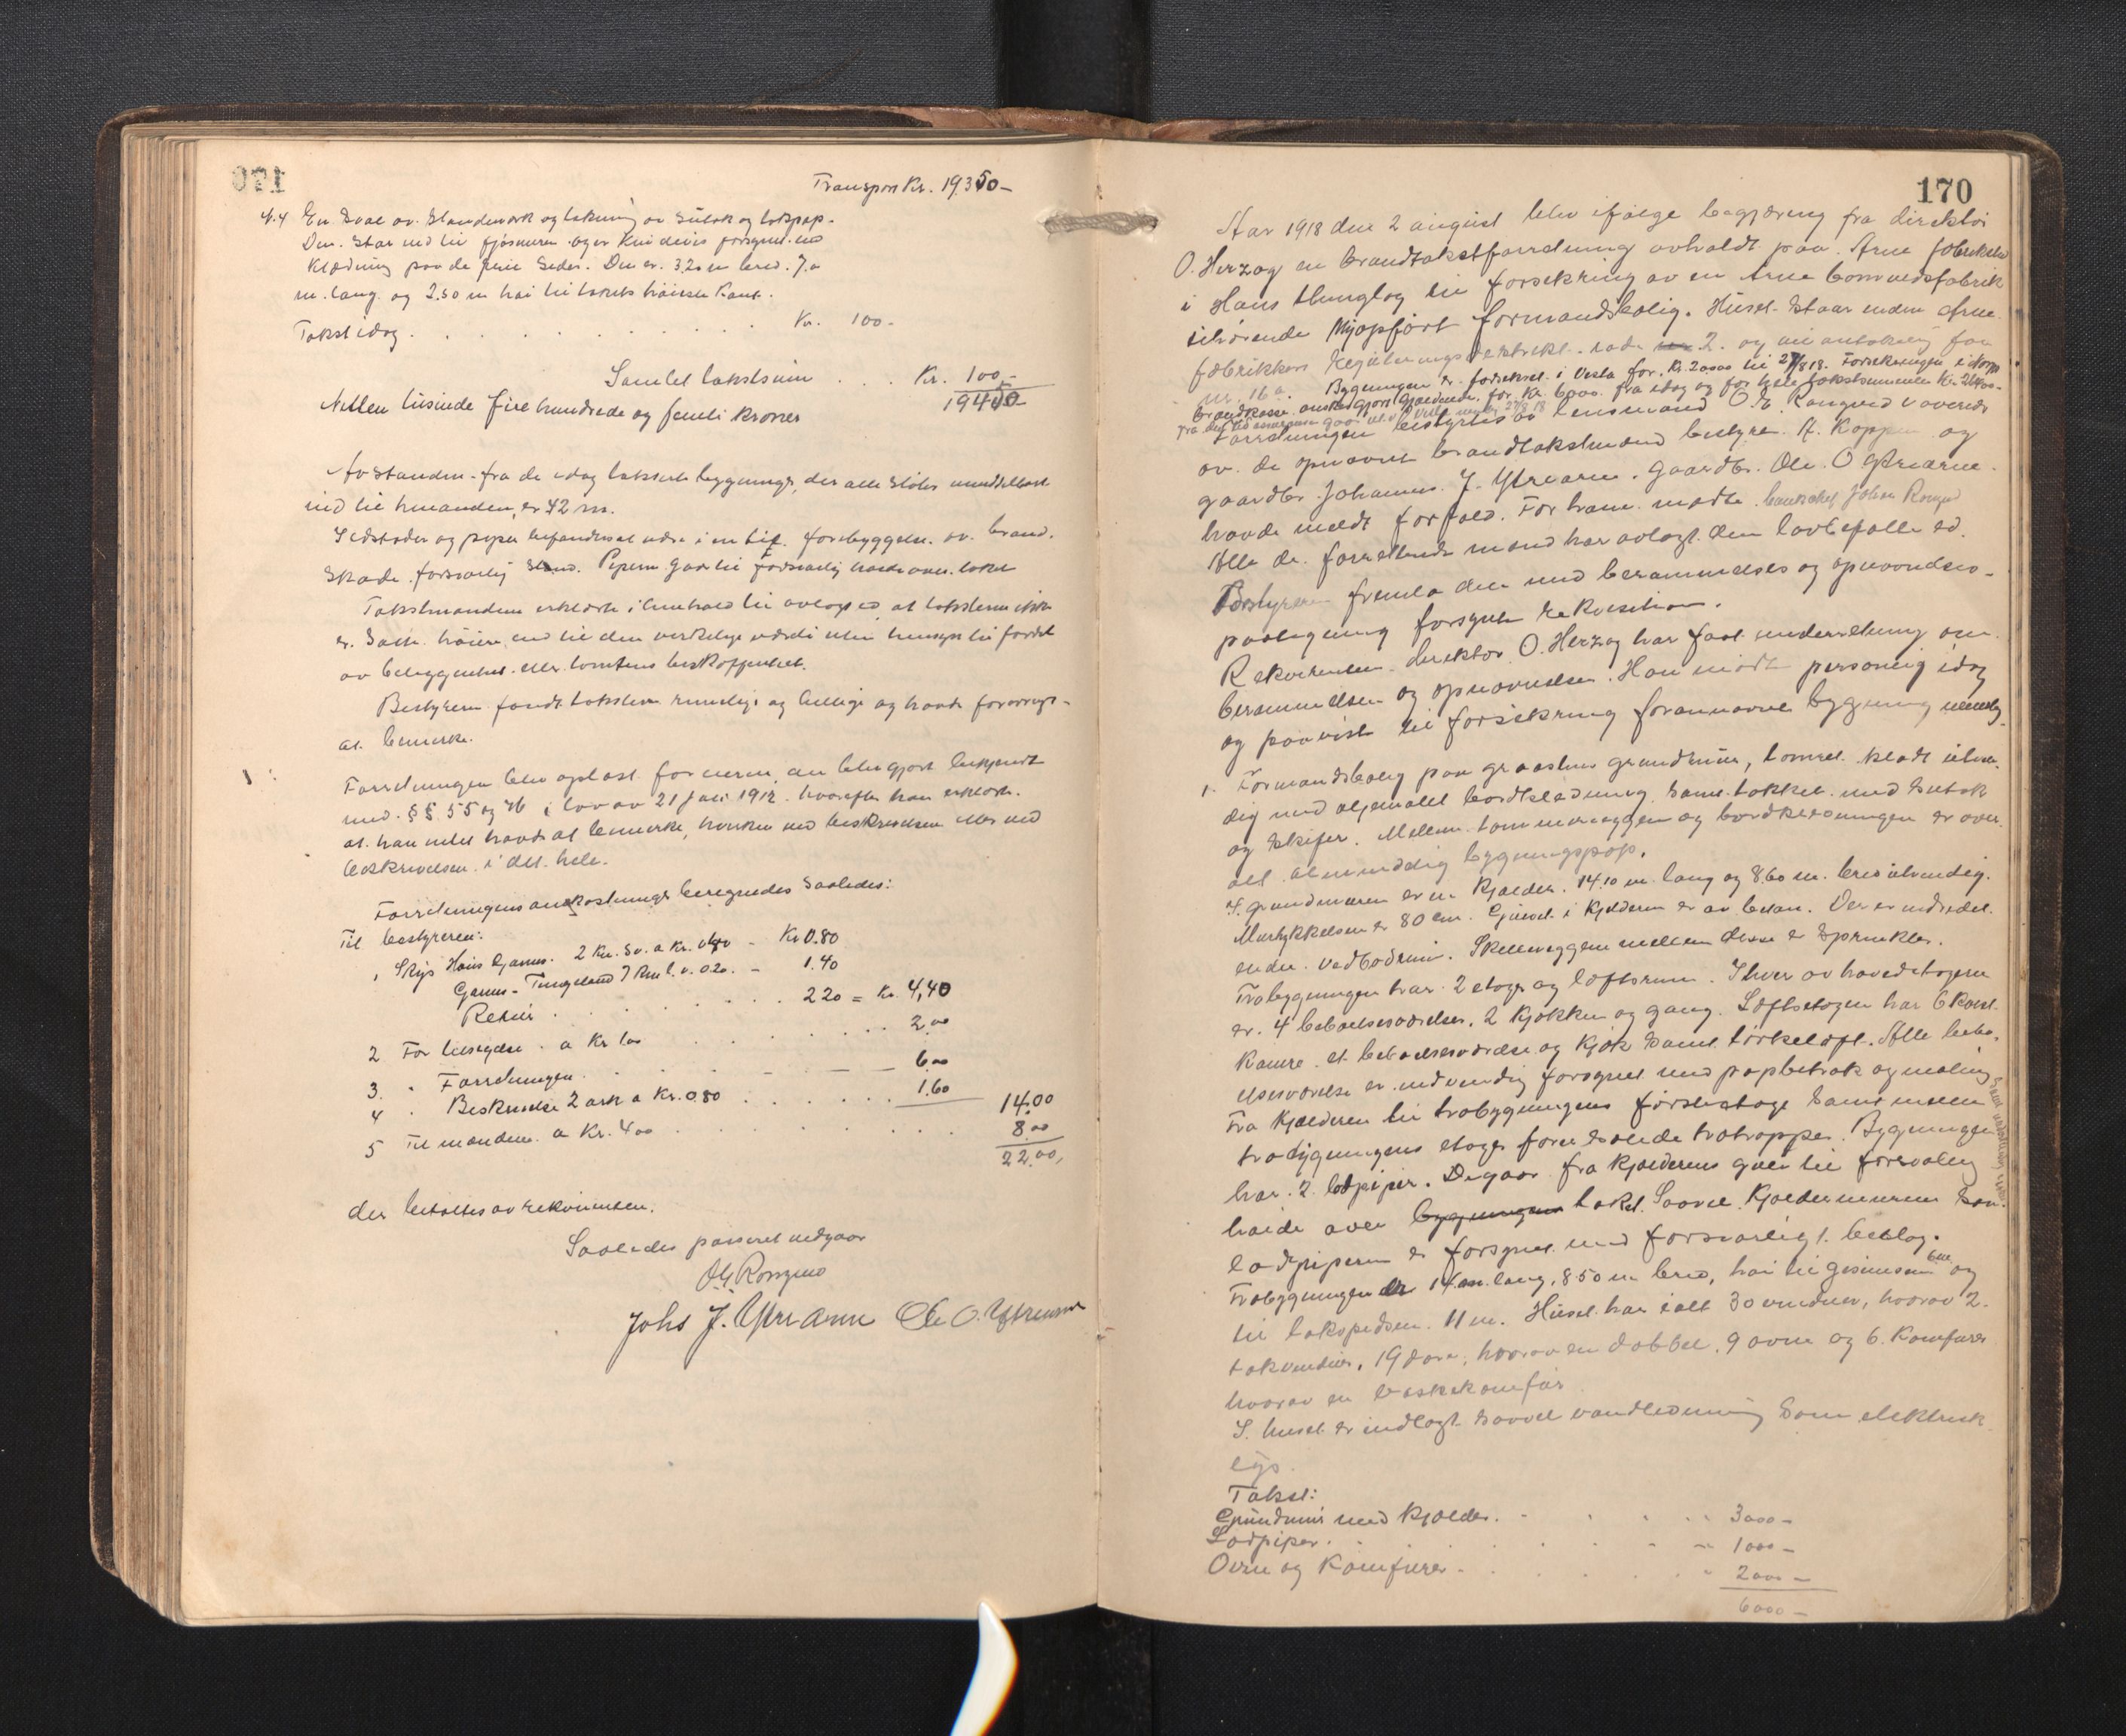 170
Transport Kr. 19350-
N. 4 En Sval av Standverk og tækning av Sutak og takpap-
Den Staar ind til fjøsmuren og er Kun delvis forsynt med
Klædning paa de frie Sider. Den er 3,20 m bred. 7,0
m. lang og 2,50 m høi til takets høieste Kant.
Takst idag . . . . . . . . Kr. 100-
Samlet takstsum . . . Kr. 100-
Nitten tusinde fire hundrede og femti kroner 19450-
Avstanden fra de idag takserte bygninger, der alle støter umiddelbart
ind til hinanden, er 42 m.
Ildsteder og piper befandtes at være i en til forebyggelse av brand-
skade forsvarlig Stand. Piperne gaar til forsvarlig høide over taket
Takstmændene erklærte i henhold til avlagt ed at taksterne ikke
er Satte høiere end til den virkelige værdi uten hensyn til fordel
av beliggenhet eller tomtens beskaffenhet.
Bestyreren fandt taksterne rimelige og billige og havde forøvrigt
at bemerke.
Forretningen blev oplæst for eieren, der blev gjort bekjendt
med §§ 55 og 76 i lov av 21 juli 1912 hvorefter han erklærte
at han intet havde at bemerke, hverken ved beskrivelsen eller ved
beskrivelsen i det hele.
Forretningens omkostninger beregnedes Saaledes:
Til bestyreren:
1 Skyds Haus Garnes 2 Km. Sv. a Kr. 0,40 - Kr 0.80
Garnes - Tengeland 7 Km l. v. 0.20 - 1.40
Retur . . . . . . 2 20 = Kr. 4,40
2 For tilsigelse a Kr 1.00 . . . . 2.00
3. " Forretningen . . . . 6.00
4 " Beskrivelse 2 ark a Kr. 0.80 . . . . . . 1.60
14.00
5 Til mændene a Kr. 4.00 . . . . . . 8.00
22.00,
der betaltes av rekvirenten.
Saaledes passeret vedgaar
O E Rongved
Johs J. Ytrearne Ole O. Ytrearne
170
Aar 1918 den 2 august blev ifølge begjæring fra direktør
O. Herzog en brandtakstforretning avholdt paa Arne fabrikker
i Haus thinglag til forsikring av en Arne bomuldsfabrik
tilhørende Nyopført formandsbolig. Huset Staar under Arne
fabrikkers Reguleringsdistrikt rode 2. og
nr. 16 a. Bygningen er forsikret i Vesta for Kr. 20000 til 27/8 18. Forsikringen i Norges
brandkasse ønskes gjort gjældende for Kr. 6000 fra idag og for hele takstsummen Kr. 26000-
Forretningen bestyrtes av Lensmand O. E. Rongved i overvær
av de opnævnte brandtakstmænd bestyrer A. Koppen og
gaardbr. Johannes J. Ytrearne. Gaardbr. Ole O Ytrearne
havde meldt forfald. For ham møtte Johan Rongved
Alle de forrettende mænd har avlagt den lovbefalte ed.
Bestyreren fremla den med berammelses og opnævnelses-
paategning forsynte rekvisition.
Rekvirenten direktør O. Herzog har faat underretning om
berammelsen og opnævnelsen. Han møtte personlig idag
og paaviste til forsikring forannævnte bygning nemlig
1. Formandsbolig paa graastens grundmur, tømret klædt utven-
dig med oljemalet bordklædning samt tækket med Sutak
og Skifer. Mellem tømmervæggen og bordklædningen er over-
alt almindelig bygningspap.
I grundmuren er en kjælder 14.10 m lang og 8.60 m. bred utvendig.
Murtykkelsen er 80 cm. Gulvet i kjælderen er av beton. Der er indredet
endel vedbodrum. Skillevæggen mellem disse er Sprinkler.
Træbygningen har 2 etager og loftsrum. I hver av hovedetagerne
er 4 beboelsesværelser, 2 kjøkken og gang. Loftsetagen har 6 kvist-
kamre et beboelsesværelse og kjøk samt tørkeloft. Alle bebo-
elsesværelse er indvendig forsynet med papbetræk og maling
Fra kjælderen til træbygningens første etage samt mellem
træbygningens etager fører solide trætrapper. Bygningen
har 2 lødpiper. De gaar fra kjælderens gulv til forsvarlig
høide over bygningens taket. Saavel kjældermuren som
lødpiperne er forsynet med forsvarligt beslag.
Træbygningen er 14 m lang, 8.50 m bred, høi til gesimsen 6 m og
til takspidsen 11 m. Huset har ialt 30 vinduer, hvorav 2
takvinduer, 19 døre, hvorav en dobbel, 9 ovne og 6 Komfurer
hvorav en vaskekomfur
I huset er indlagt saavel vandledning som elektrisk
lys.
Takst:
Grundmur med kjælder . . . . . 3000 -
Lødpiper . . . . . 1000 -
Ovne og Komfurer . . . . . 2000 -
6000 -